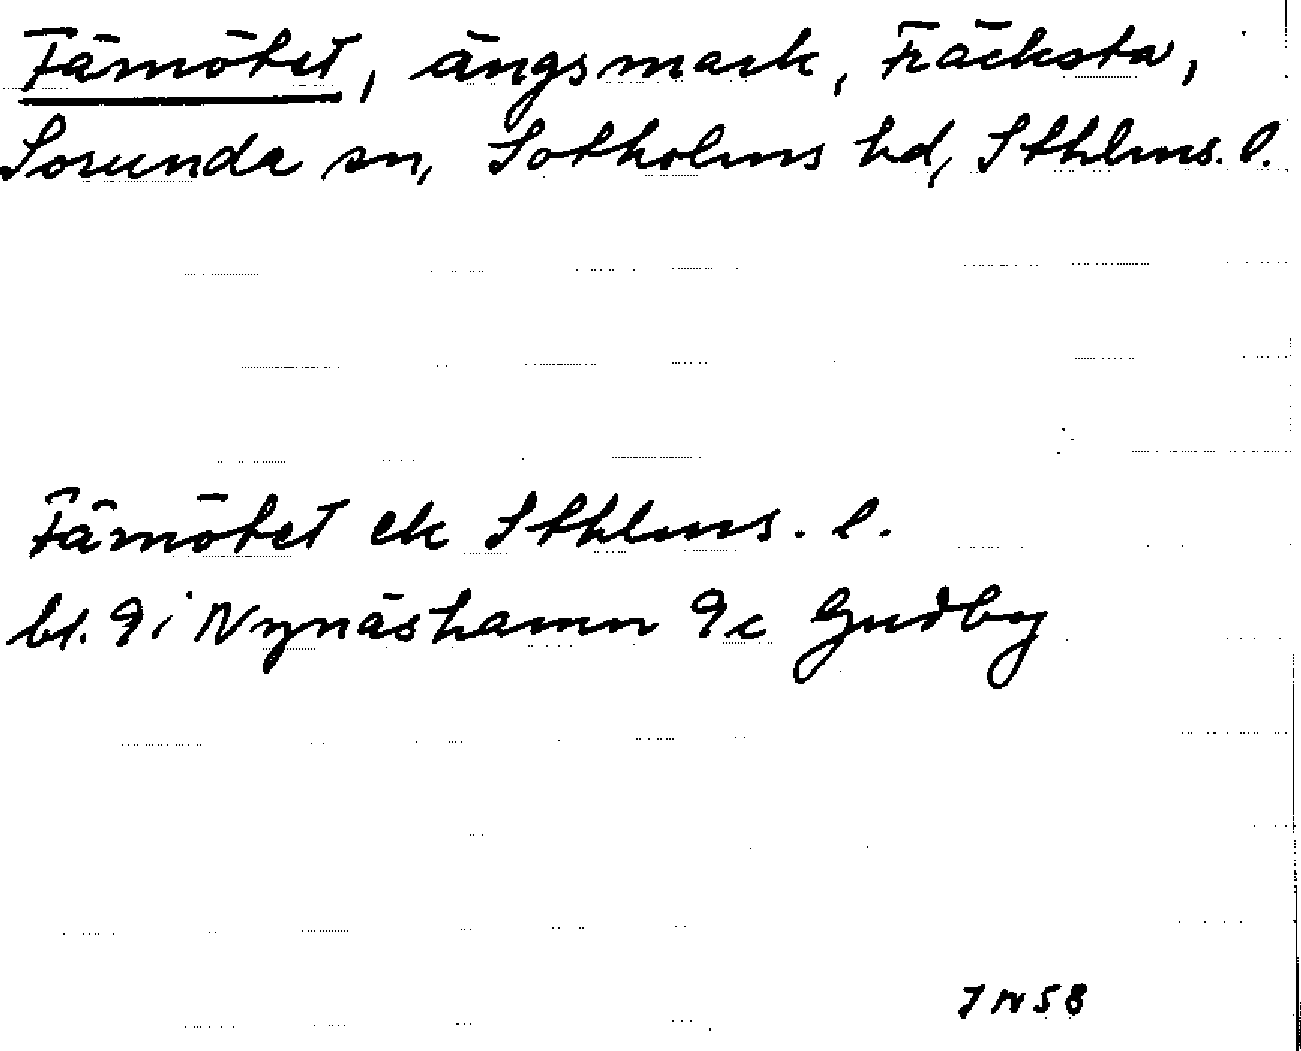 Fämötet, ängsmark, Fräcksta,
Sorunda sn, Sotholms hd, Sthlms. l.
Fämötet ek Sthlms. l.
bl. 9 i Nynäshamn 9c Gudby
JN58